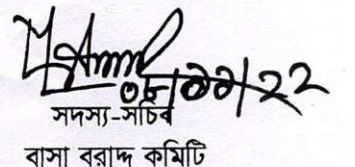 ০৮/০৯/২২
সদস্য-সচিব
বাসা বরাদ্দ কমিটি